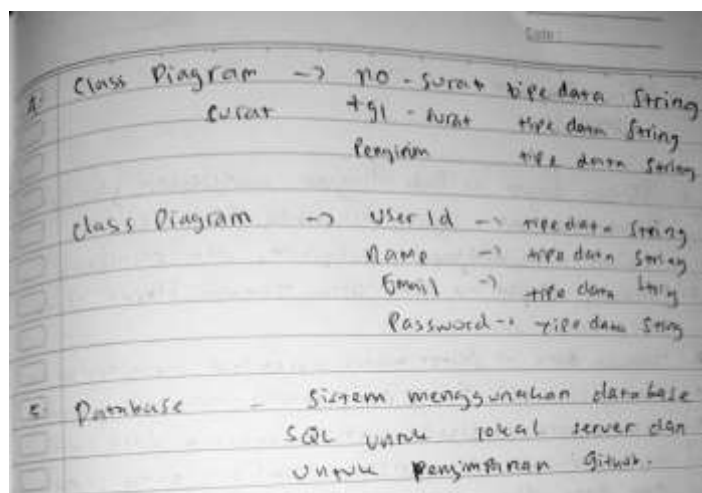 Date:
4. Class Diagram -> no - surat tipe data String
surat tgl - surat tipe data String
Pengirim tipe data String
class Diagram -> User Id -> tipe data String
Name -> tipe data String
Email -> tipe data String
Password -> tipe data String
5. Database - Sistem menggunakan database
SQL untuk lokal server dan
untuk penyimpanan Github.